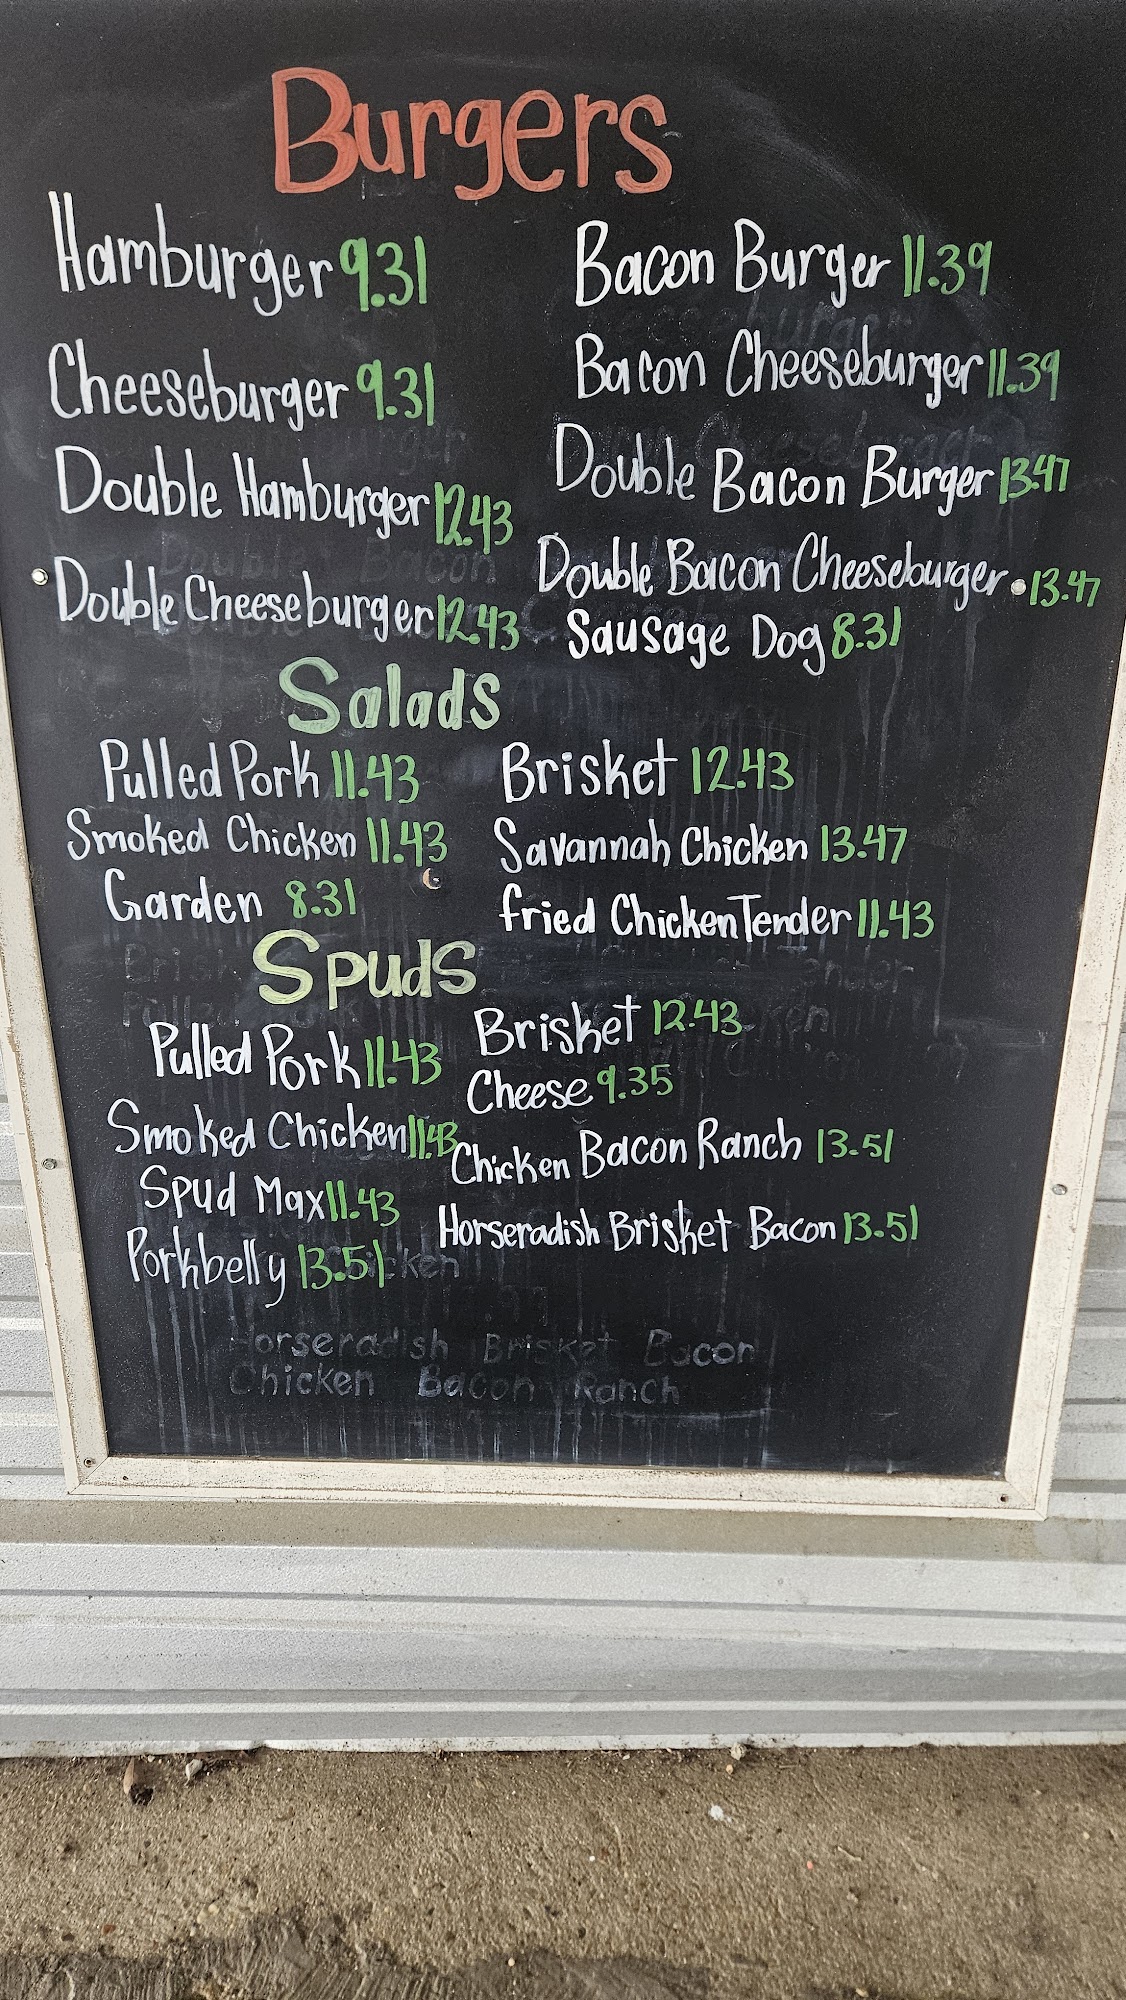 Burgers
Hamburger 9.31
Bacon Burger 11.39
Cheeseburger 9.31
Bacon Cheeseburger 11.39
Double Hamburger 12.43
Double Bacon Burger 13.47
Double Cheeseburger 12.43
Double Bacon Cheeseburger 13.47
Sausage Dog 8.31
Salads
Pulled Pork 11.43
Brisket 12.43
Smoked Chicken 11.43
Savannah Chicken 13.47
Garden 8.31
fried Chicken Tender 11.43
Spuds
Pulled Pork 11.43
Brisket 12.43
Cheese 9.35
Smoked Chicken 11.43
Chicken Bacon Ranch 13.51
Spud Max 11.43
Horseradish Brisket Bacon 13.51
Porkbelly 13.51
Horseradish Brisket Bacon
Chicken Bacon Ranch